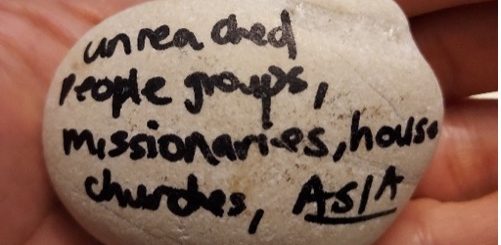 unreached
People groups,
missionaries, house
churches, ASIA